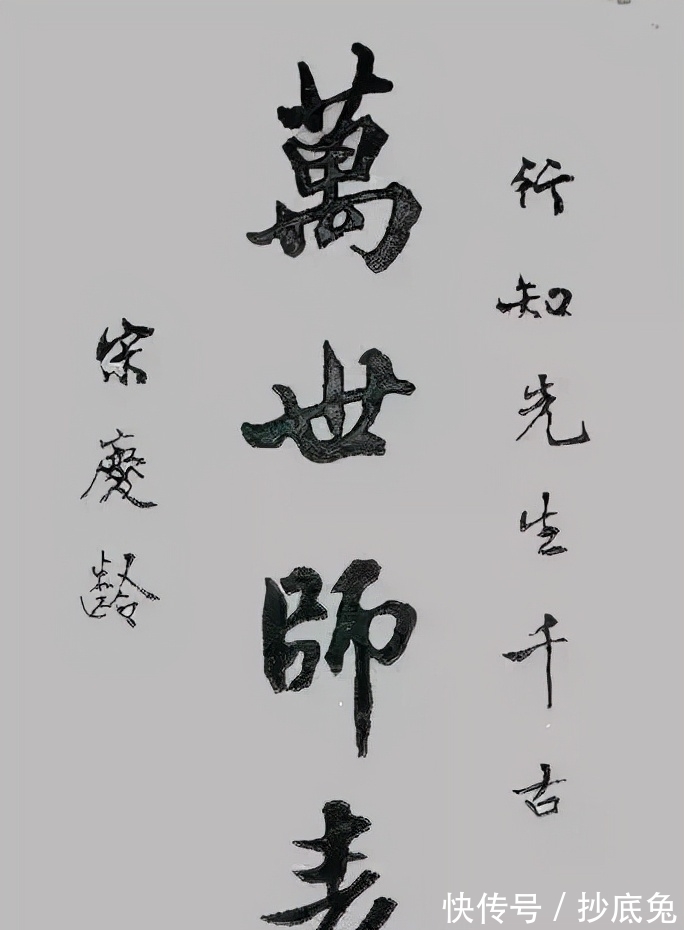 行知先生千古
萬世師表
宋慶齡
快传号 / 抄底兔